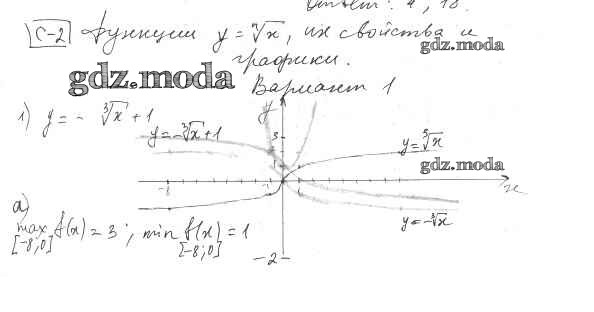 Ответ: 4; 18.
С-2 Функции y = ⁿ√x, их свойства и
графики.
gdz.moda
gdz.moda
Вариант 1
1) y = - ³√x + 1
y
y=-³√x+1
3
1
y=³√x
gdz.moda
-8
-1
x
а)
max f(x) = 3 ; min f(x) = 1
[-8;0] [-8;0]
y=-³√x
-2